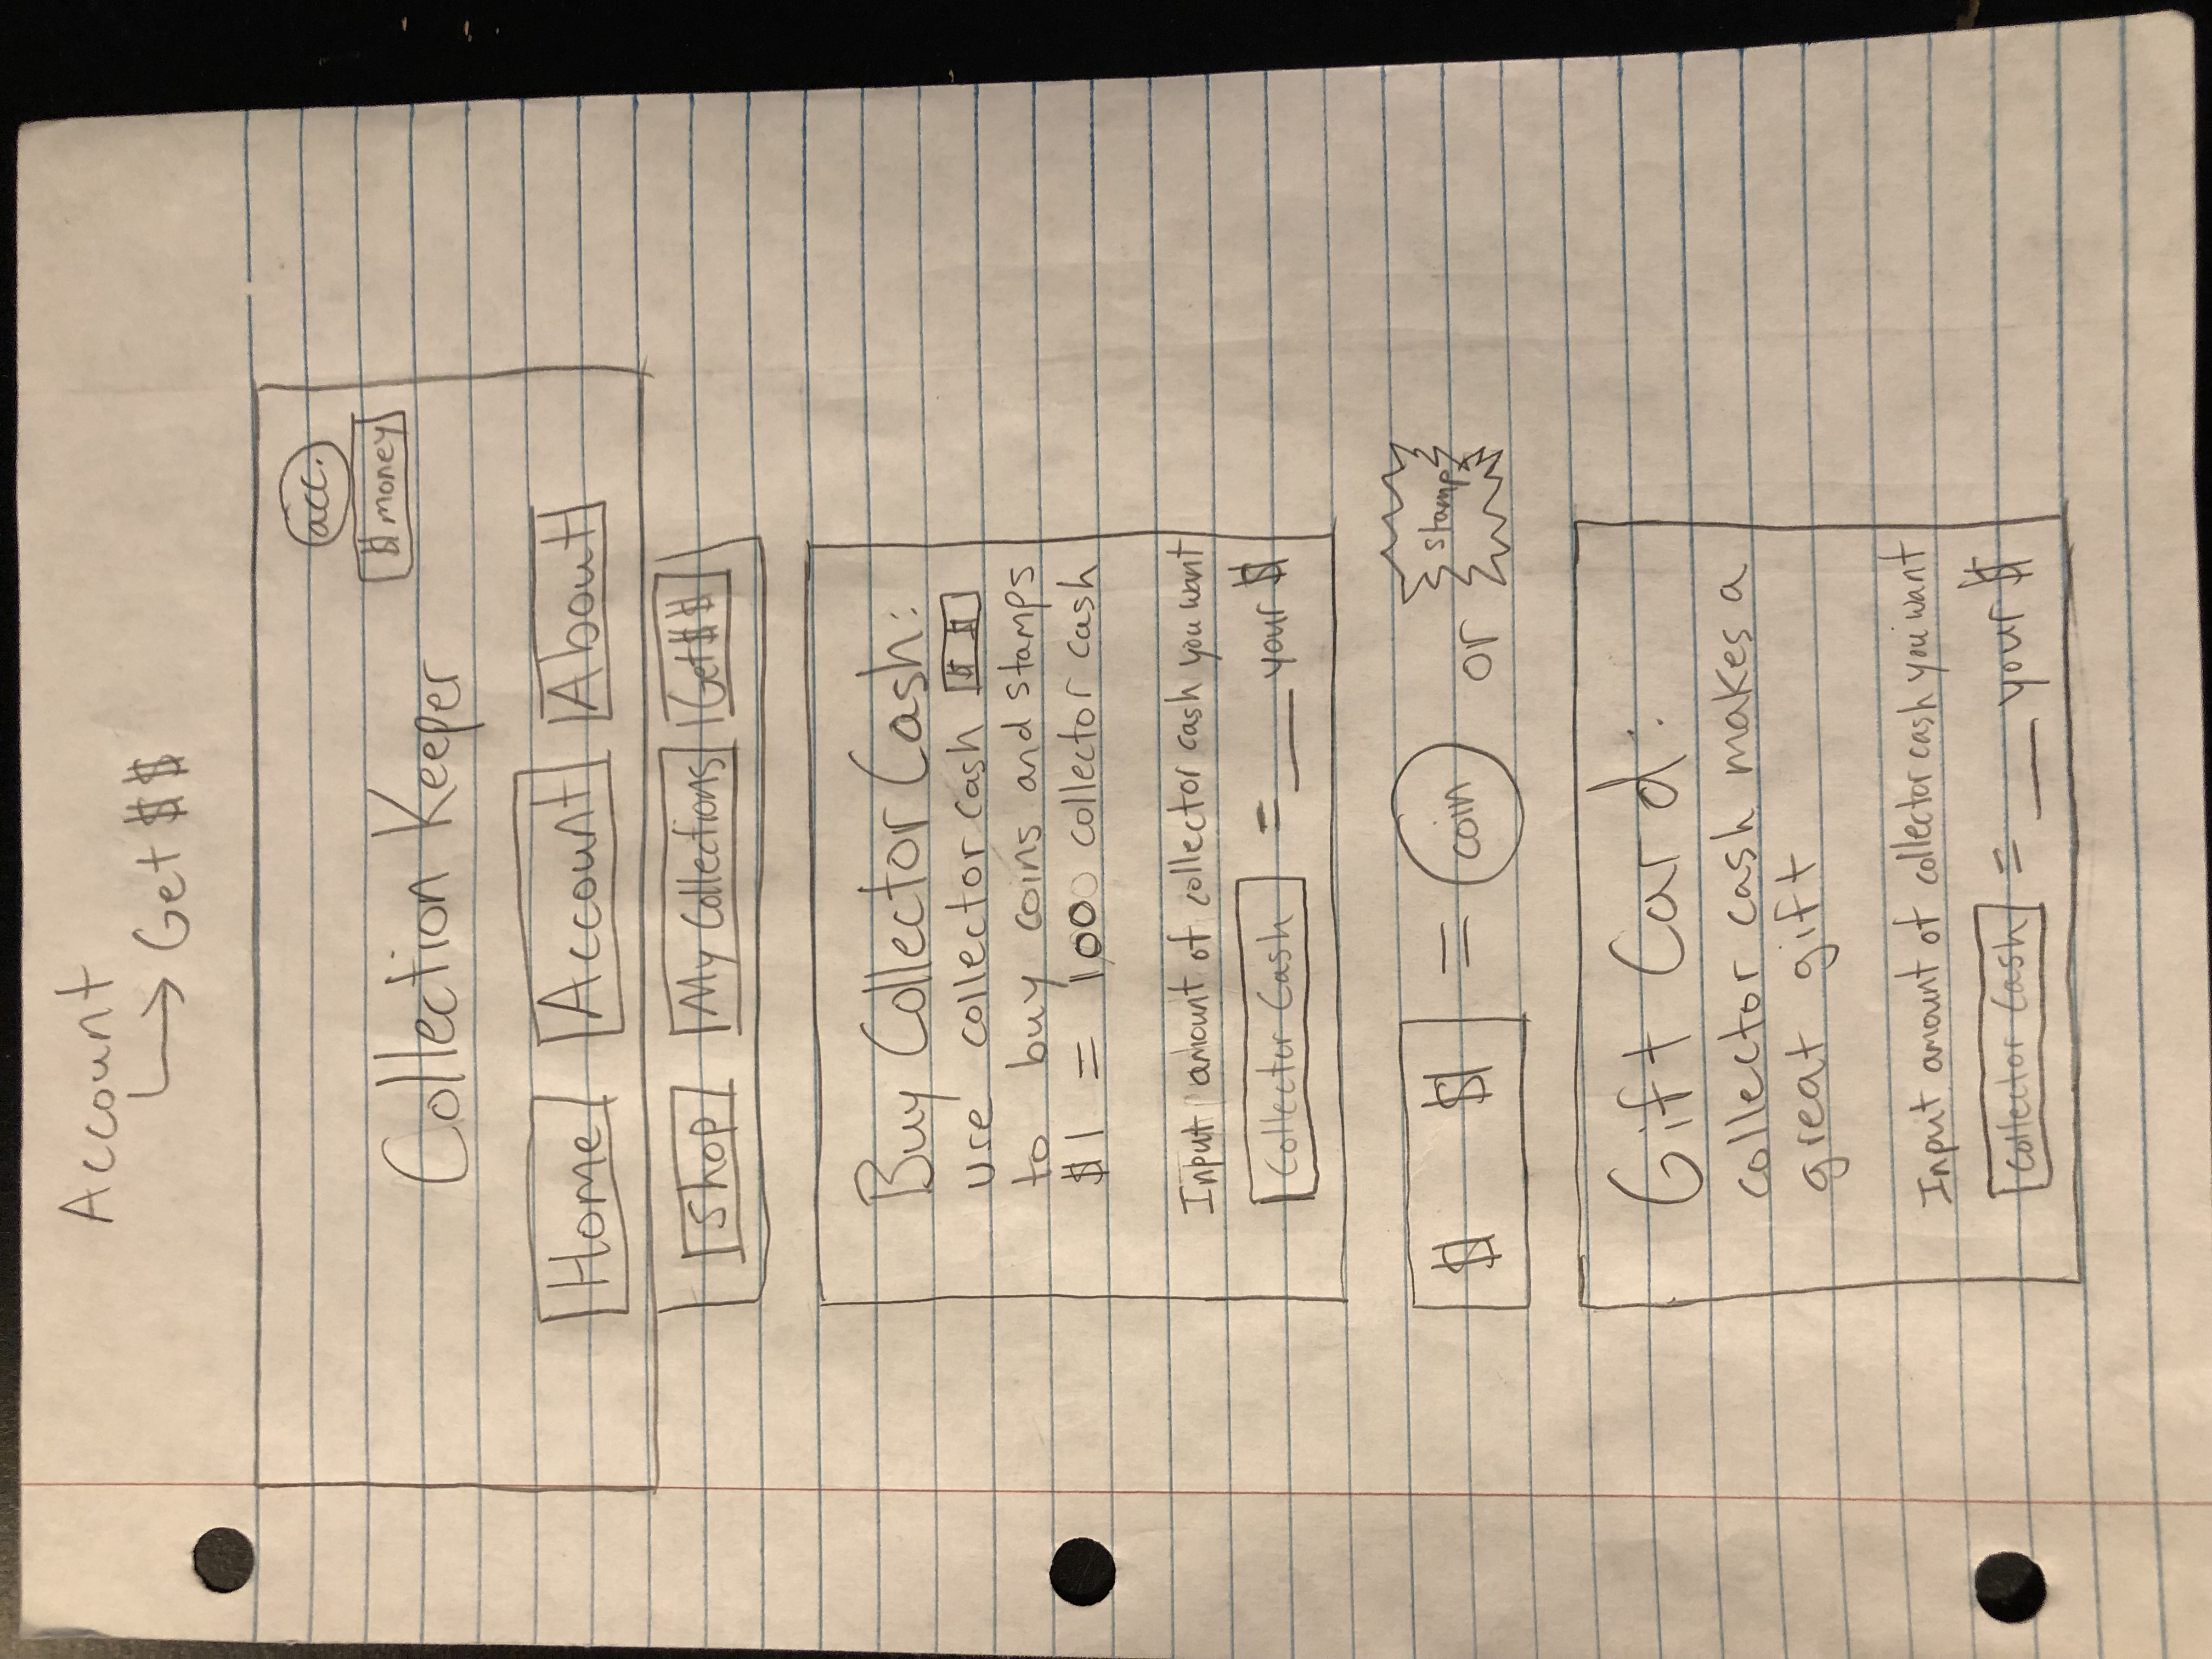 Account
Get $$
acc.
$ money
Collection Keeper
Home Account About
Shop My Collections Get $$
Buy Collector Cash:
use collector cash $ $
to buy coins and stamps
$1 = 1,000 collector cash
Input amount of collector cash you want
Collector Cash = __ your $
$ $ = coin or stamp
Gift Card:
collector cash makes a
great gift
Input amount of collector cash you want
Collector Cash = __ your $